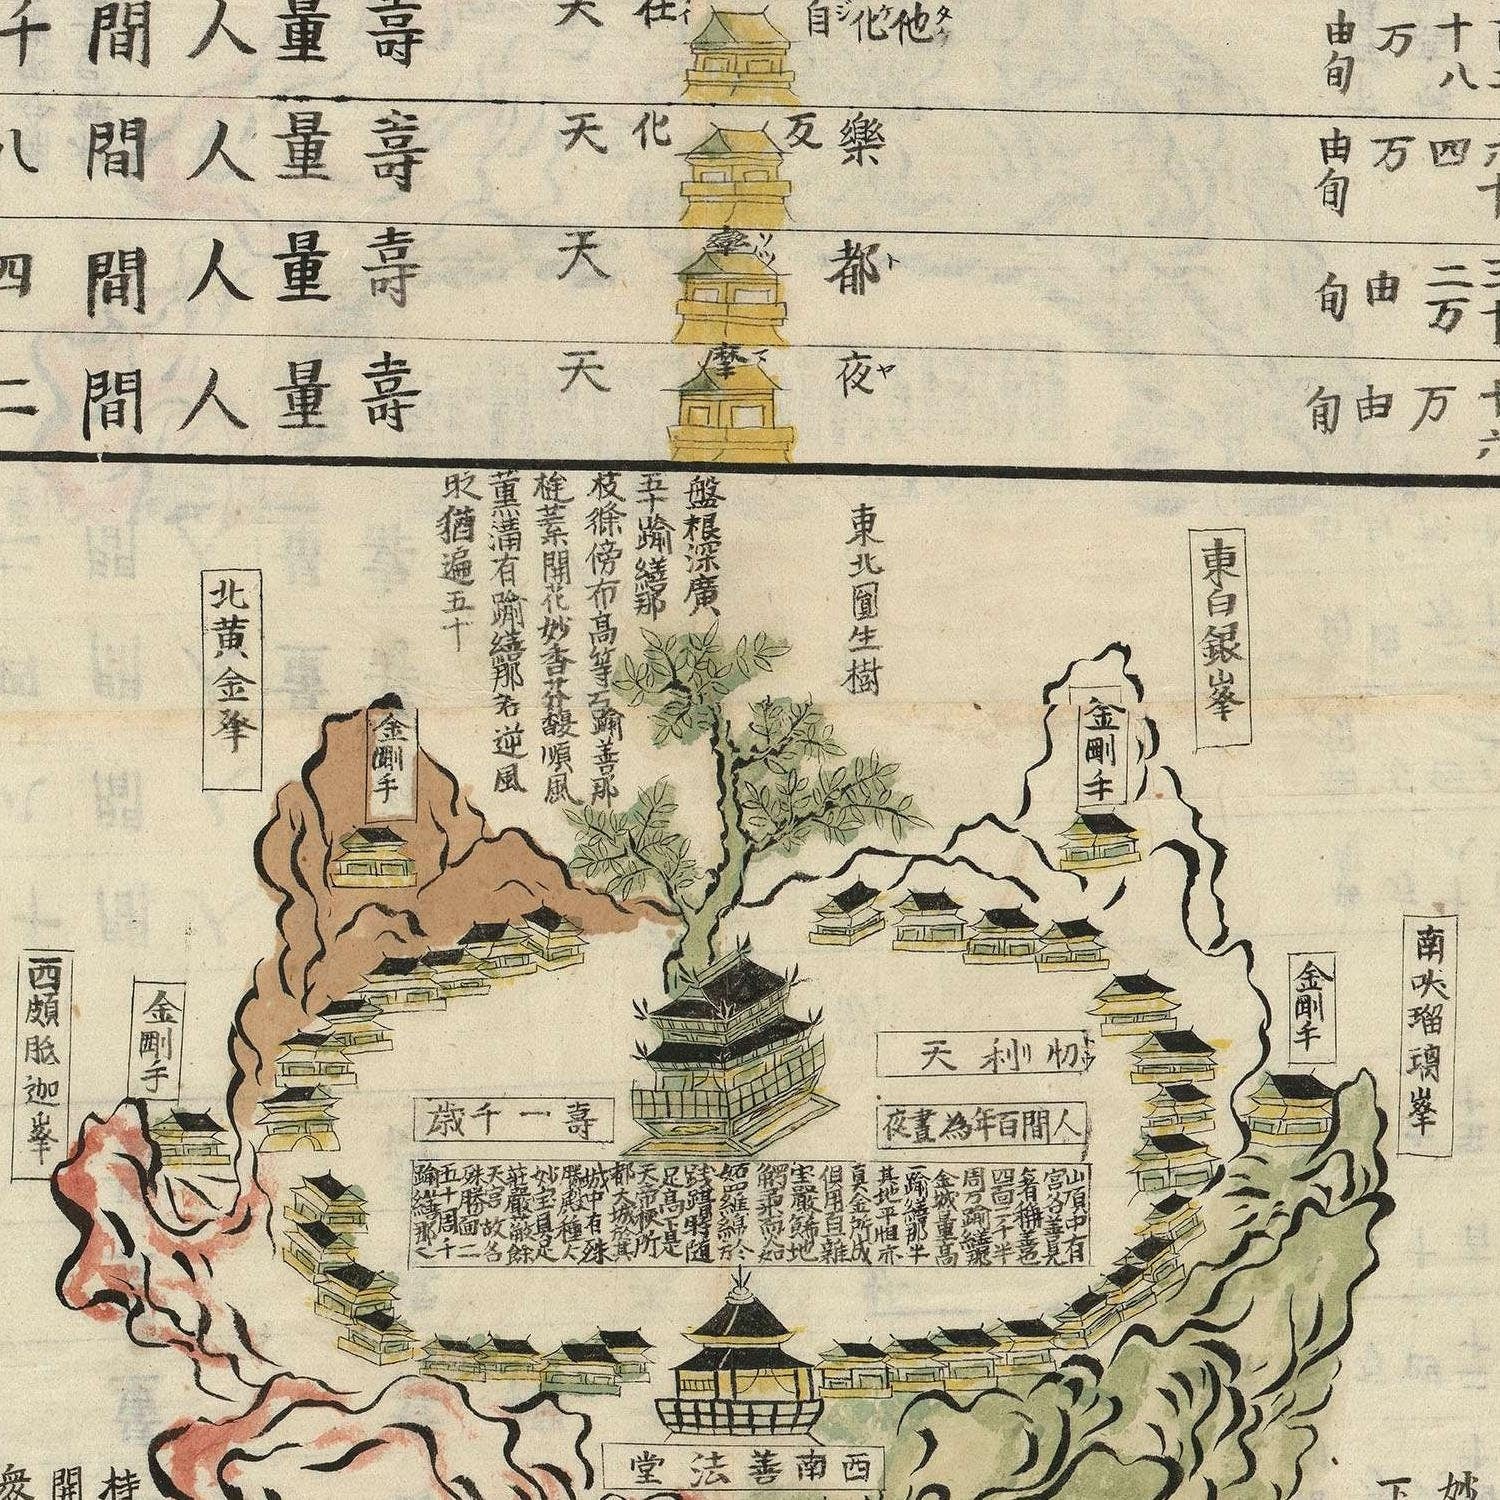 十八万由旬
他化自在天
壽量人間千
六十四万由旬
樂変化天
壽量人間八
三十二万由旬
都率天
壽量人間四
十六万由旬
夜摩天
壽量人間二
東白銀峯
金剛手
東北圓生樹
盤根深廣
五十踰繕那
枝條傍布高等百踰善那
挺葉開花妙香芬馥順風
薫滿百踰繕那若逆風
时猶遍五十
北黄金峯
金剛手
南吠瑠璃峯
金剛手
忉利天
人間百年為晝夜
壽一千歳
山頂中有
宮名善見
四面二千半
周万踰繕那
金城量高
一踰繕那半
其地平坦亦
真金所成
俱用百雜
宝嚴飾地
觸柔軟如
妬羅綿於
践躡時随
足高下是
天帝釈所
都大城於其
城中有殊
勝殿種々
妙宝具足
莊嚴蔽餘
天宮故名
殊勝面二
五十周千
踰繕那之
金剛手
西頗胝迦峯
西南善法堂
妙
下
桂
開
衆